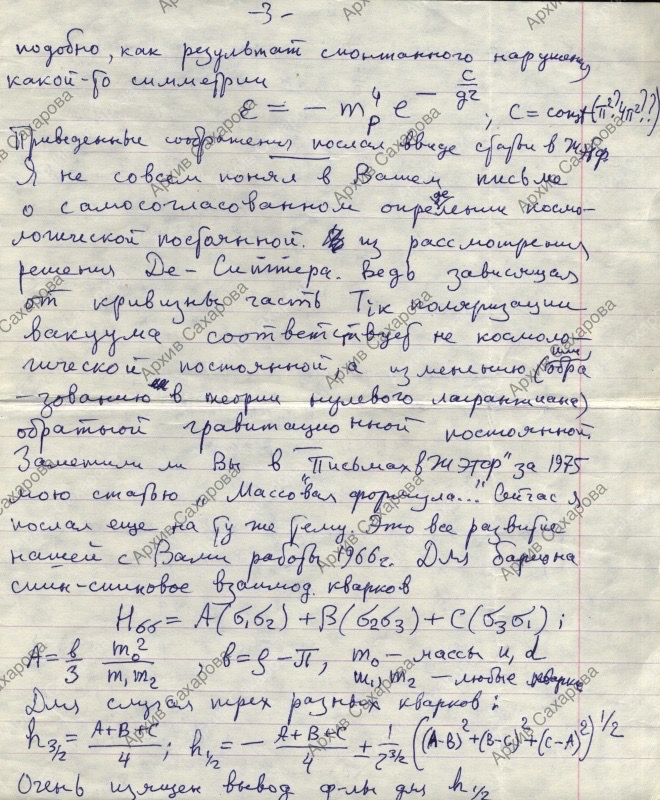 -3-
подобно, как результат спонтанного нарушения
какой-то симметрии
ε = - m_p^4 e^{- c/g²} ; c = const (π²? 4π²??)
Приведенные соображения послал ввиде статьи в ЖЭТФ
Я не совсем понял в Вашем письме
о самосогласованном определении космо-
логической постоянной из рассмотрения
решения Де-Ситтера. Ведь зависящая
от кривизны часть Tik поляризации
вакуума соответствует не космоло-
гической постоянной, а изменению (или обра
-зованию ее в теории нулевого лагранжиана)
обратной гравитационной постоянной.
Заметили ли Вы в "Письмах в ЖЭТФ" за 1975
мою статью "Массовая формула..." Сейчас я
послал еще на ту же тему. Это все развитие
нашей с Вами работы 1966 г. Для бариона
спин-спиновое взаимод. кварков
Hσσ = A(σ1σ2) + B(σ2σ3) + C(σ3σ1) ;
A = b/3 m0²/(m1 m2) ; b = ρ - π, m0 - массы u, d
m1, m2 - любые кварки
Для случая трех разных кварков:
h3/2 = (A+B+C)/4 ; h1/2 = - (A+B+C)/4 ± 1/2^{3/2} ((A-B)² + (B-C)² + (C-A)²)^{1/2}
Очень изящен вывод ф-лы для h1/2
Архив Сахарова